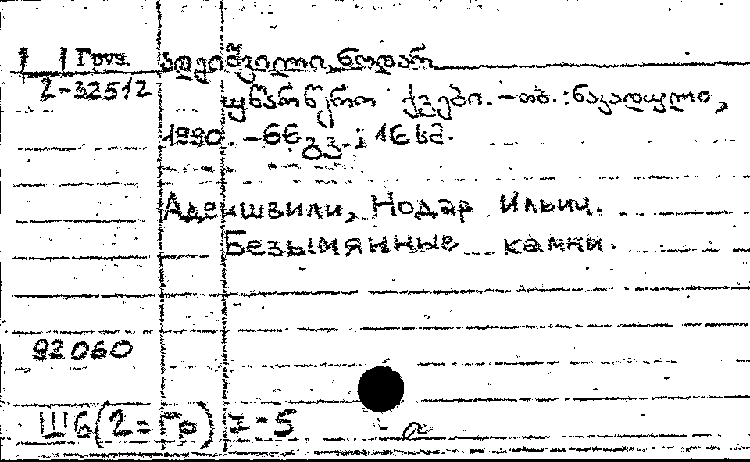 Груз. ადეიშვილი, ნოდარ
2-32512
უწარწერო ქვები. - თბ. : ნაკადული,
1990. - 66 გვ. ; 16 სმ.
Адеишвили, Нодар Ильич.
Безымянные камни.
92060
Ш6(2=Гр)7-5